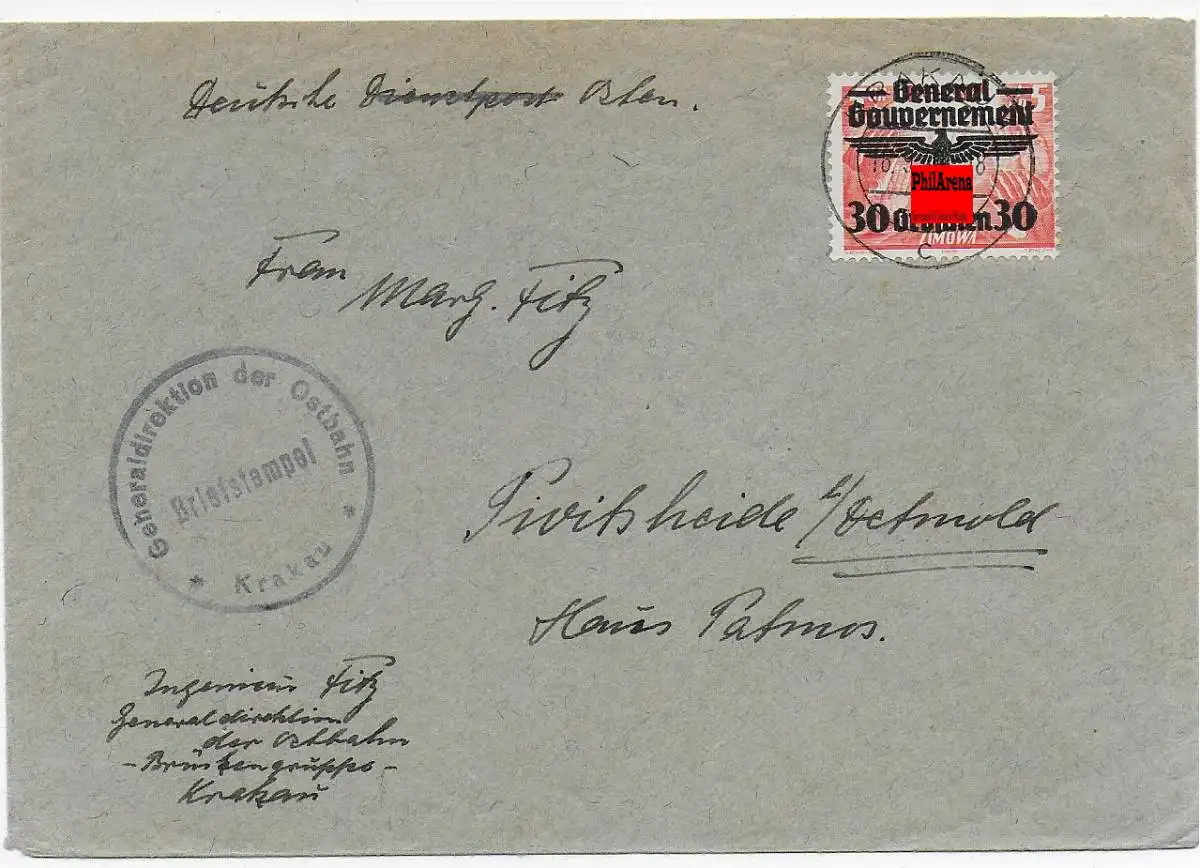 Deutsche Dienstpost Osten.
General
Gouvernement
PhilArena
30 Groschen 30
ZIMOWA
5
C
Frau
Marg. Fitz
Generaldirektion der Ostbahn
Briefstempel
* Krakau *
Pivitsheide b/Detmold
Haus Patmos.
Ingenieur Fitz
Generaldirektion
der Ostbahn
- Brückengruppe -
Krakau